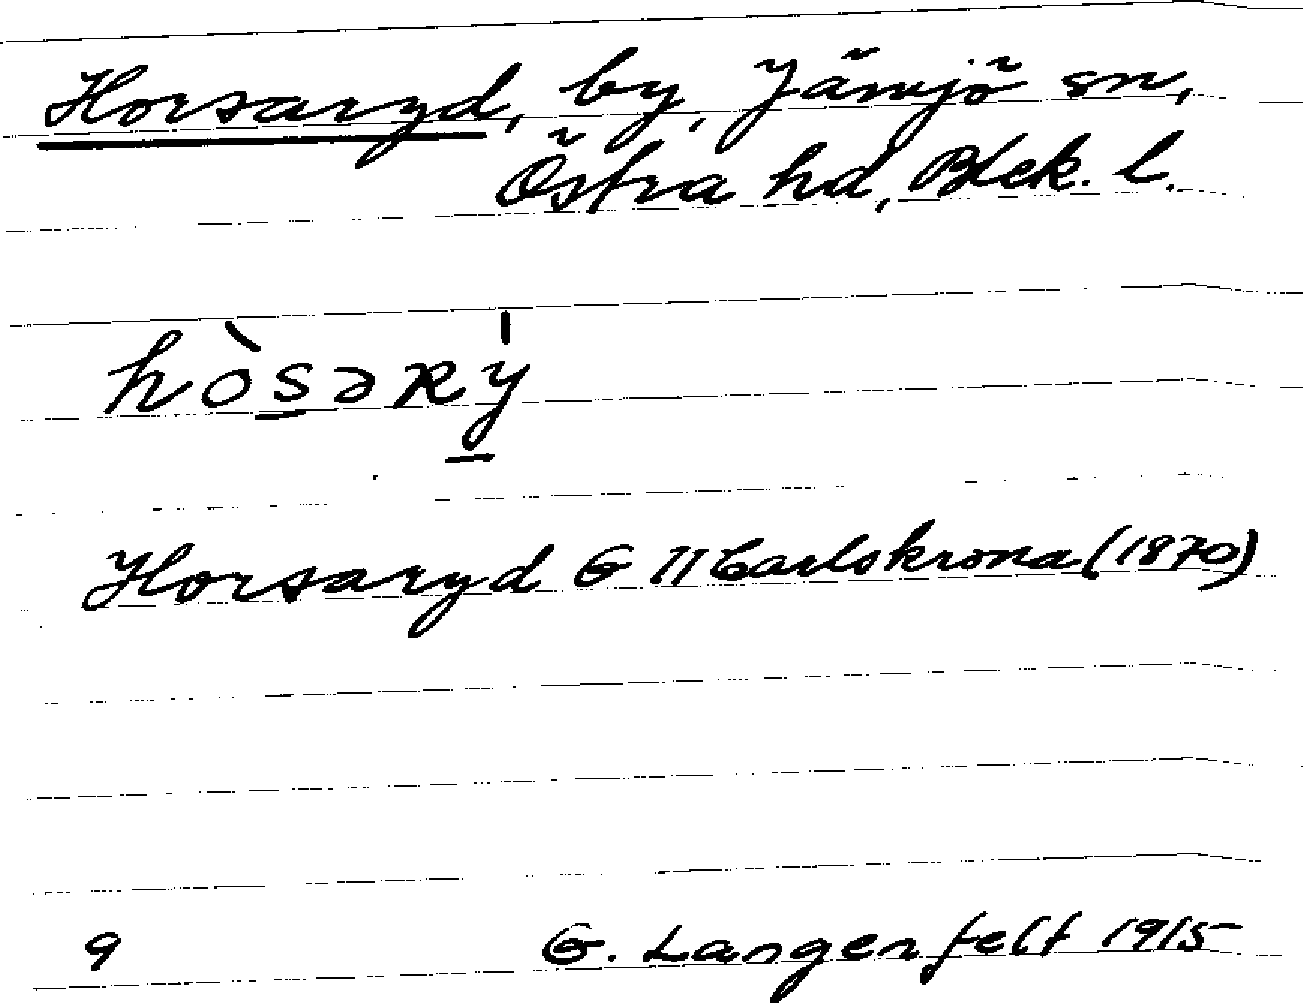 Horsaryd, by, Jämjö sn,
Östra hd, Blek. l.
hòsəʀẏ
Horsaryd G 11 Carlskrona (1870)
9 G. Langenfelt 1915